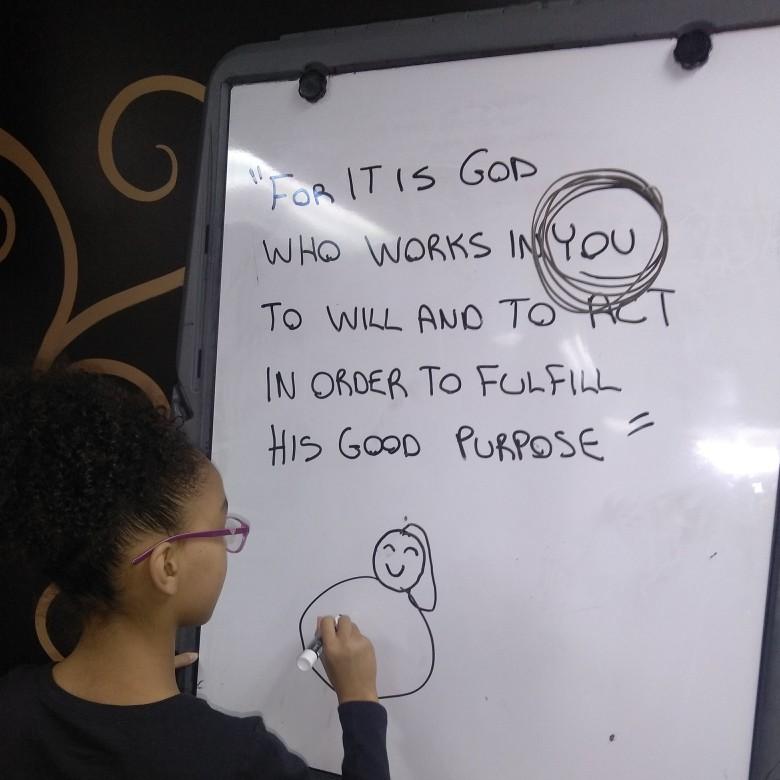 "FOR IT IS GOD
WHO WORKS IN YOU
TO WILL AND TO ACT
IN ORDER TO FULFILL
HIS GOOD PURPOSE"